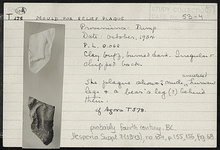 T 175 MOULD FOR RELIEF PLAQUE 53-4
Provenience: Pnyx
Date: October, 1934
P.L. 0.065
Clay buff, burned hard. Irregular
chipped back.
The plaque shows a nude, human
leg & a bear's leg (?) behind
them.
cf Agora T 578.
probably fourth century BC
Hesperia Suppl. 7 (1943), no. 87, p. 155, 156, fig. 68